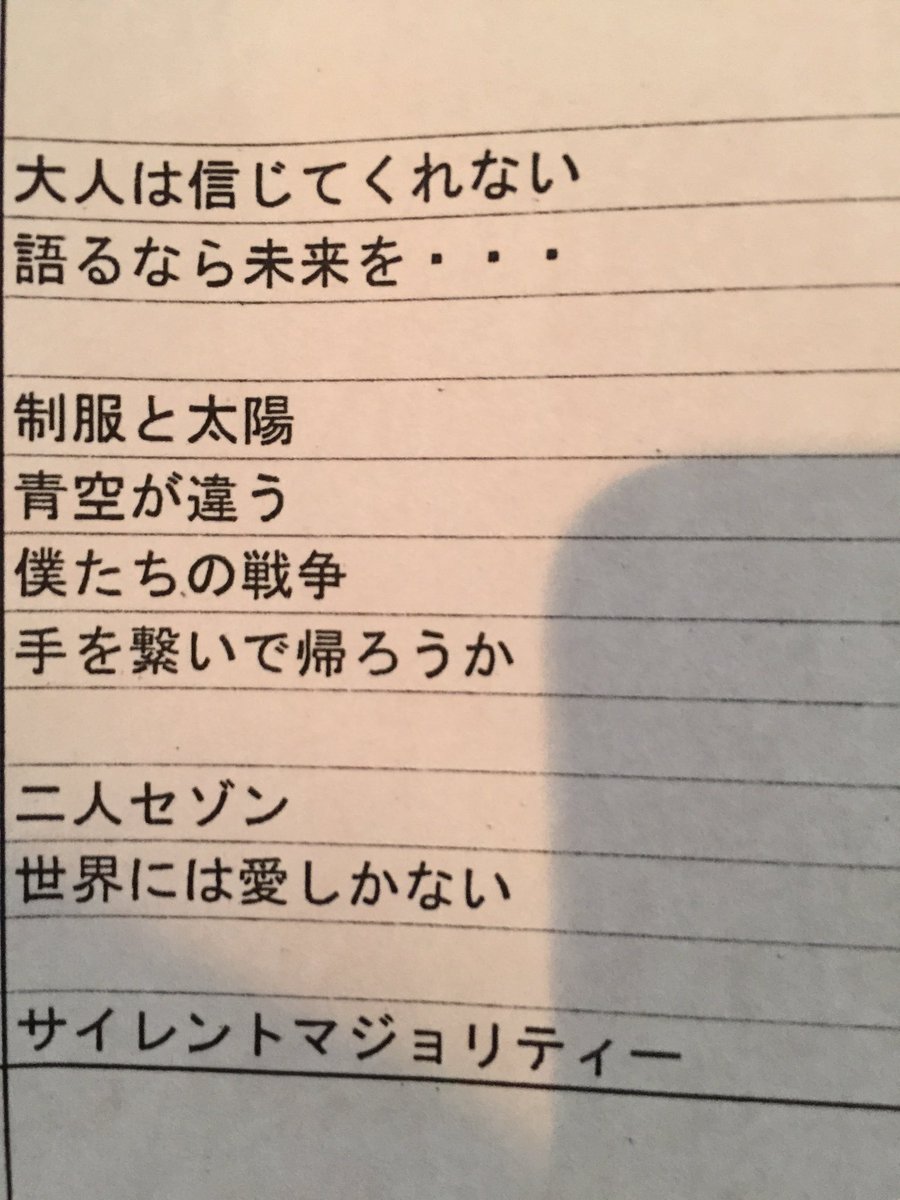 大人は信じてくれない
語るなら未来を・・・
制服と太陽
青空が違う
僕たちの戦争
手を繋いで帰ろうか
二人セゾン
世界には愛しかない
サイレントマジョリティー